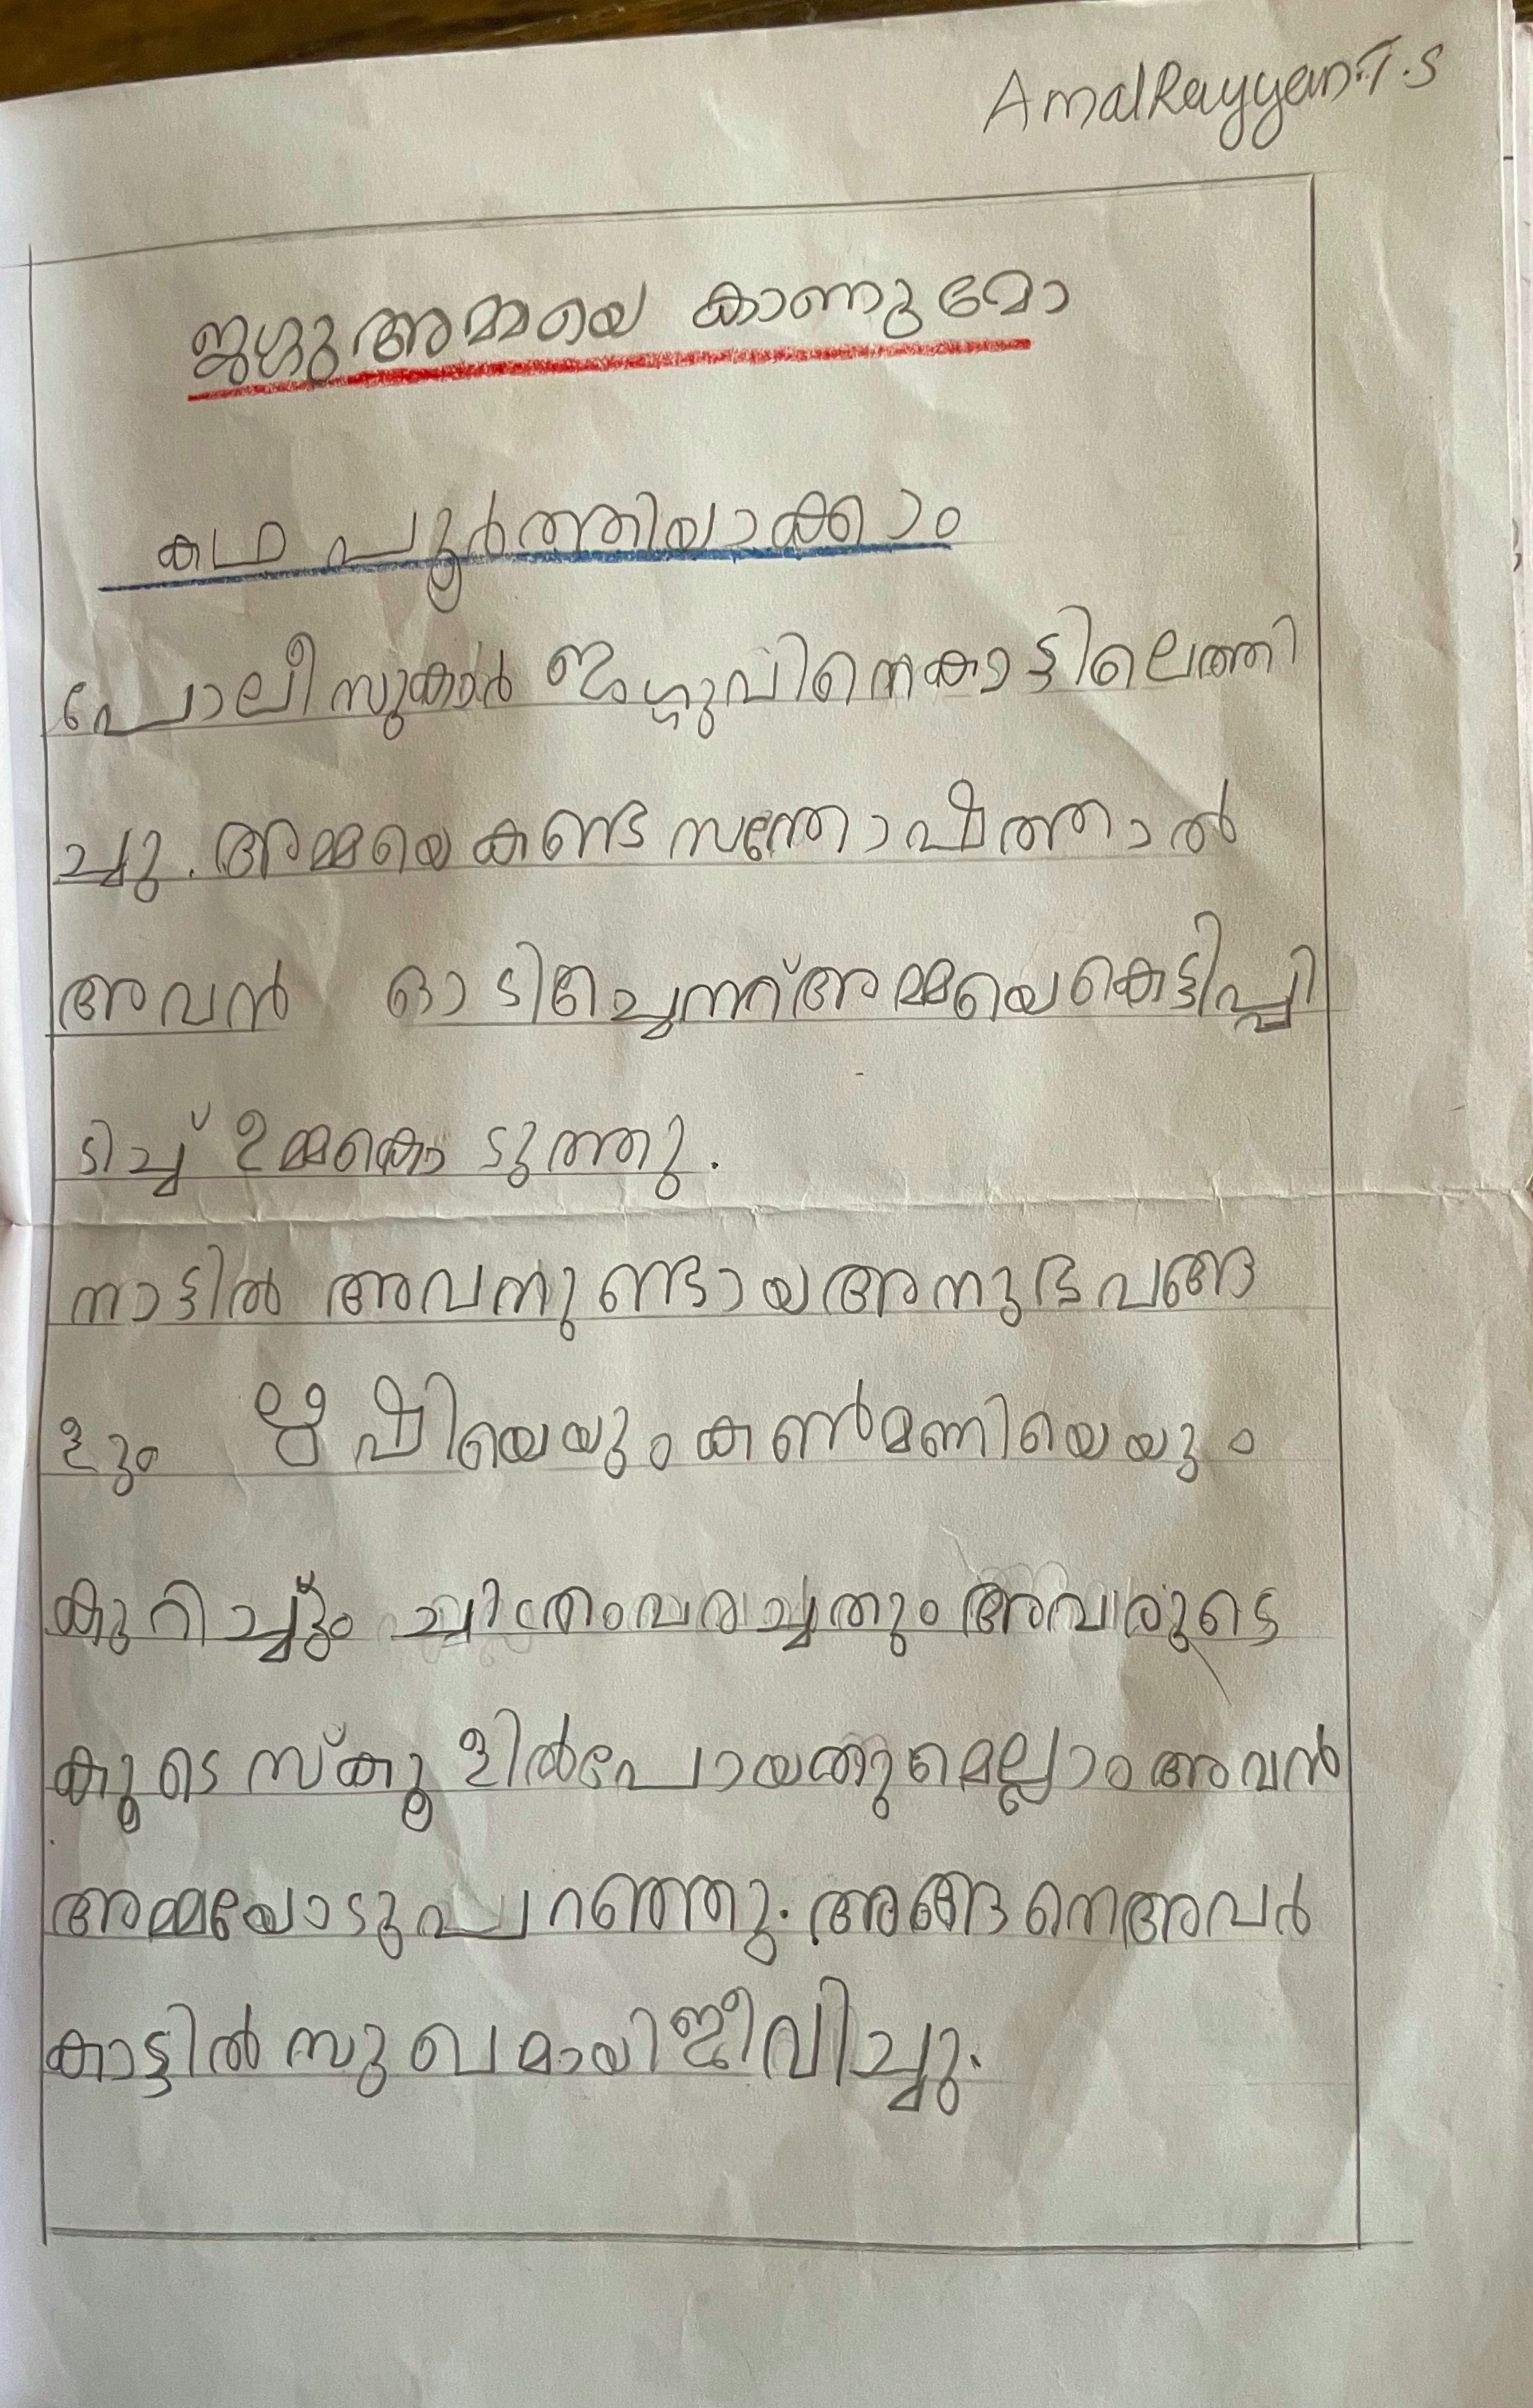 Amal Rayyan.T.S
ജഗ്ഗു അമ്മയെ കാണുമോ
കഥ പൂർത്തിയാക്കാം
പോലീസുകാർ ജഗ്ഗുവിനെ കാട്ടിലെത്തി
ച്ചു. അമ്മയെ കണ്ട സന്തോഷത്താൽ
അവൻ ഓടിച്ചെന്ന് അമ്മയെ കെട്ടിപ്പി
ടിച്ച് ഉമ്മകൊടുത്തു.
നാട്ടിൽ അവനുണ്ടായ അനുഭവങ്ങ
ളും ഋഷിയെയും കൺമണിയെയും
കുറിച്ചും ചിത്രംവരച്ചതും അവരുടെ
കൂടെ സ്കൂളിൽ പോയതുമെല്ലാം അവൻ
അമ്മയോടു പറഞ്ഞു. അങ്ങനെ അവർ
കാട്ടിൽ സുഖമായി ജീവിച്ചു.